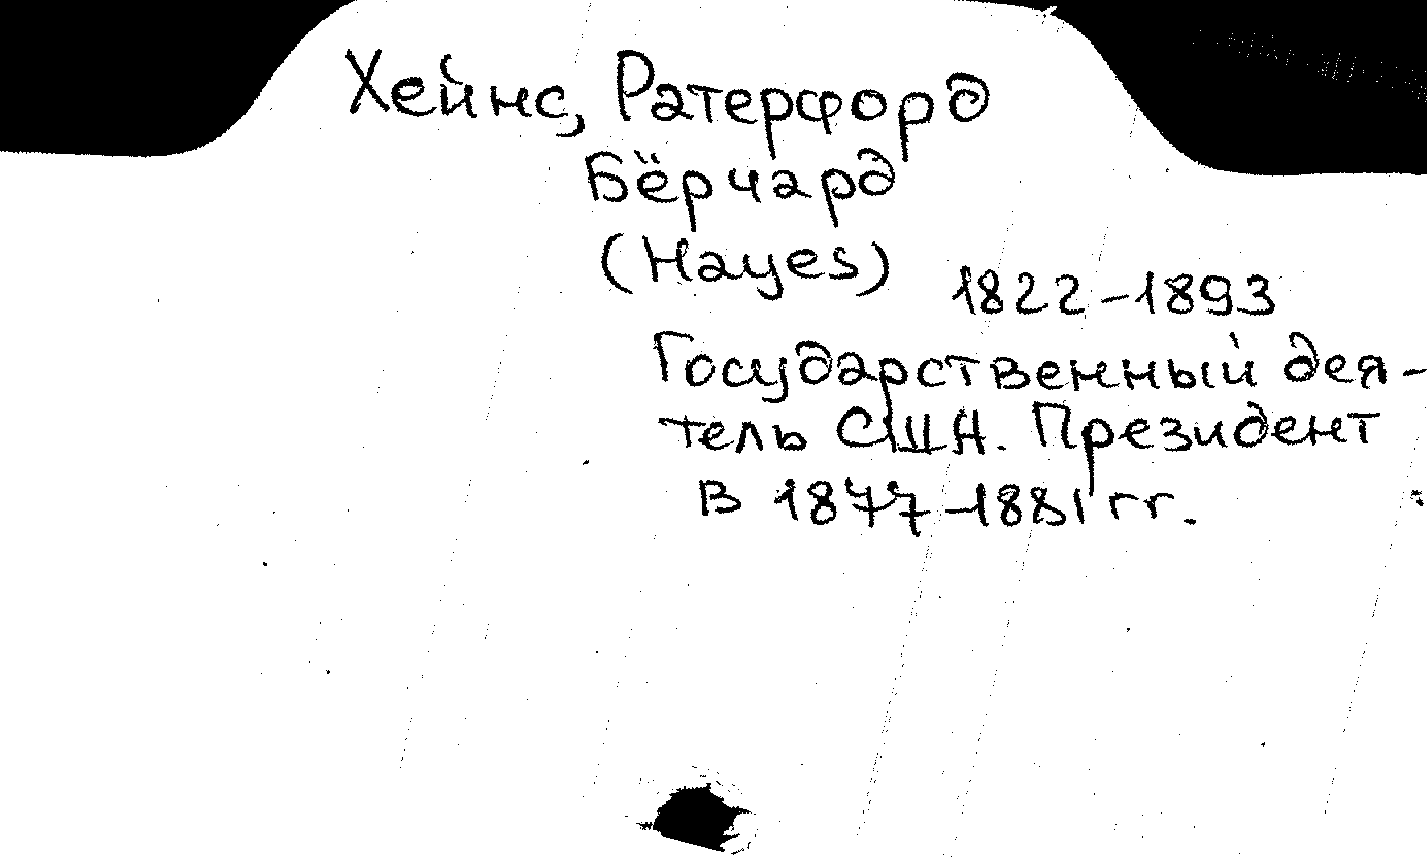 Хейнс, Ратерфорд
Бёрчард
(Hayes) 1822-1893
Государственный дея-
тель США. Президент
в 1877-1881 гг.